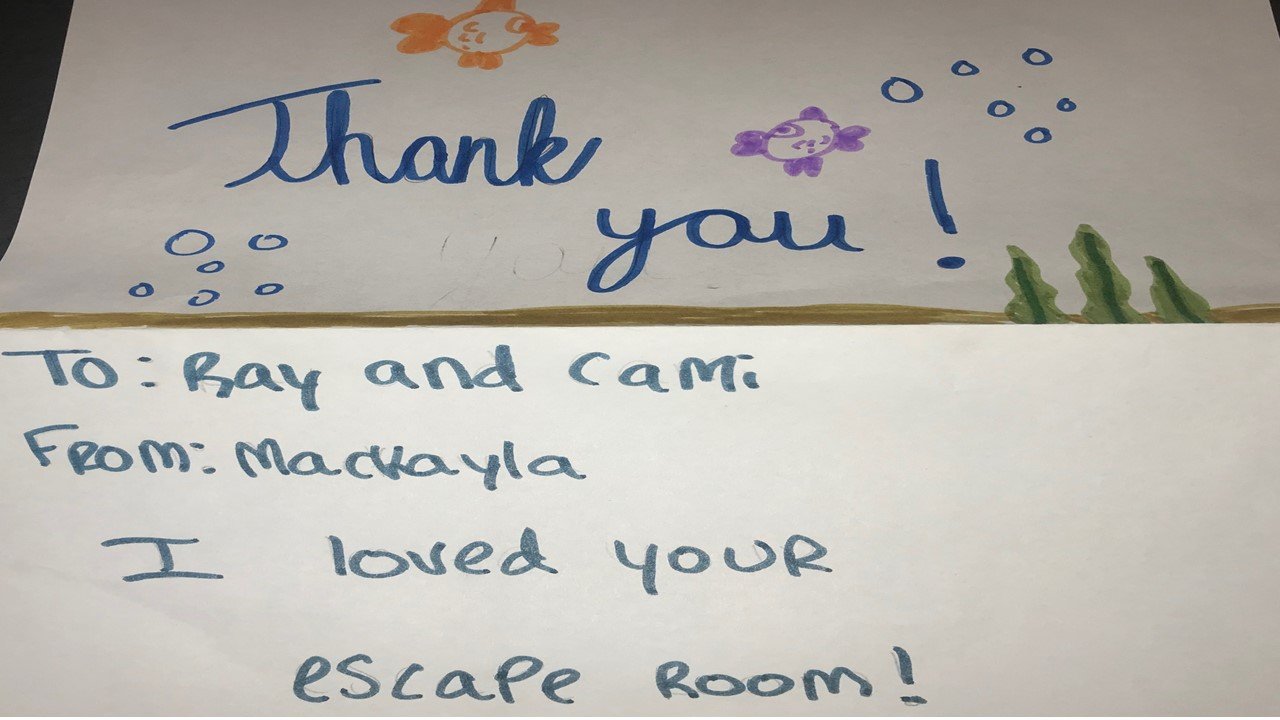 Thank
you!
To: Ray and Cami
From: Mackayla
I loved your
escape room!